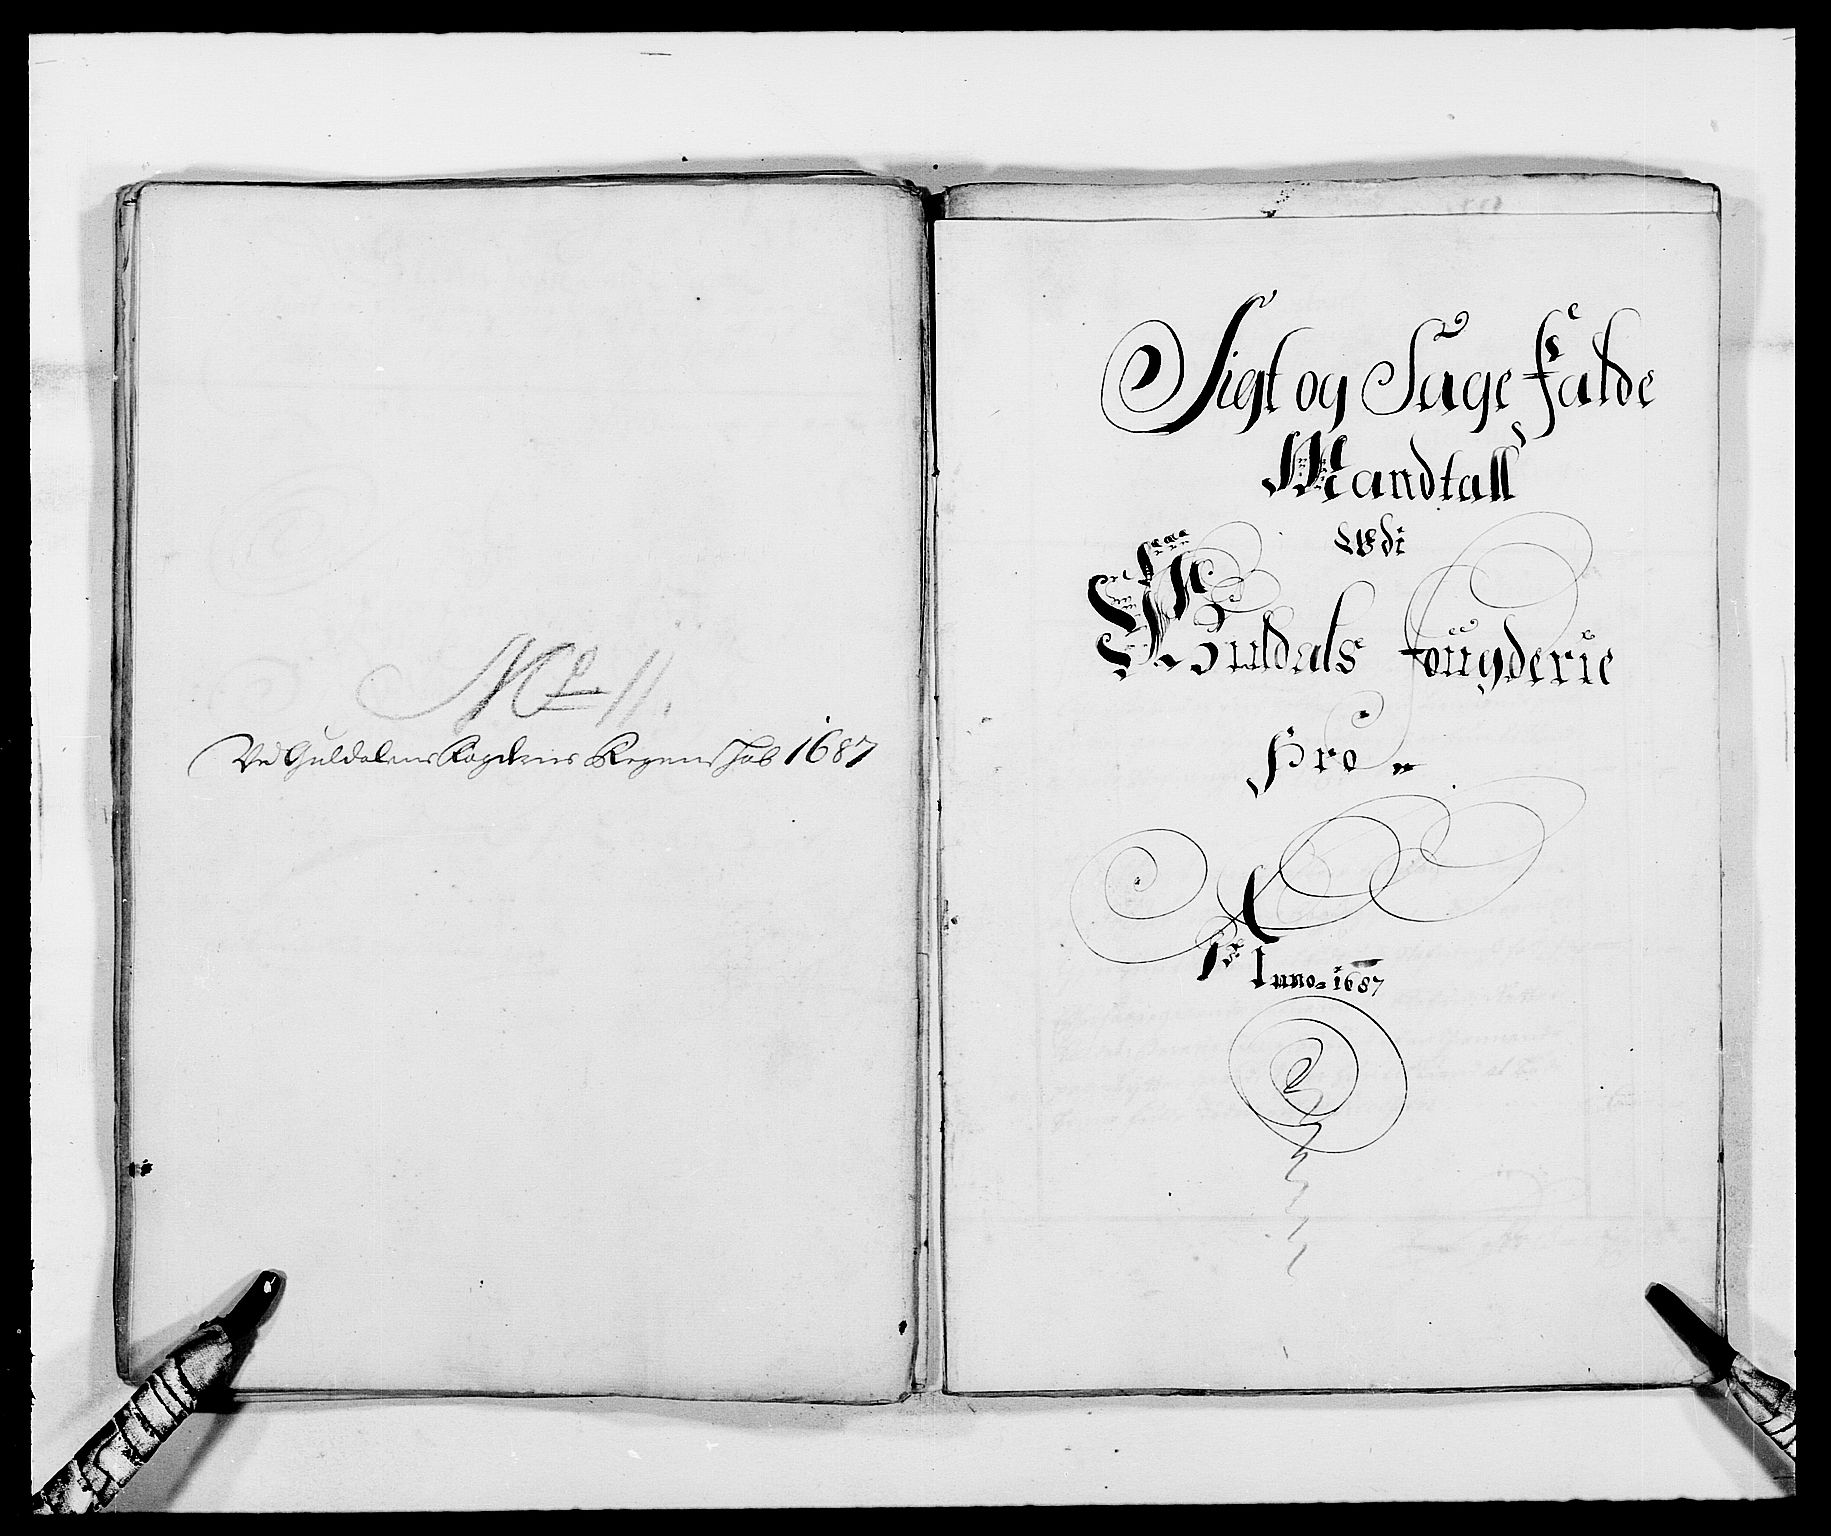 No 11.
Ved Guldalens Fogderies Regenschab 1687
Sigt og Sage falds
Mandtall
Udi
Guldals fougderie
Pro
Anno 1687